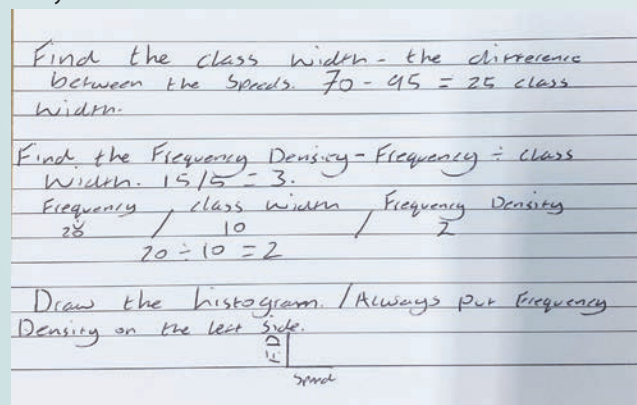 Find the class width - the difference
between the speeds. 70 - 95 = 25 class
width.
Find the Frequency Density - Frequency ÷ class
width. 15/5 = 3.
Frequency / class width / Frequency Density
20 10 2
20 ÷ 10 = 2
Draw the histogram. / Always put Frequency
Density on the left side.
FD
Speed